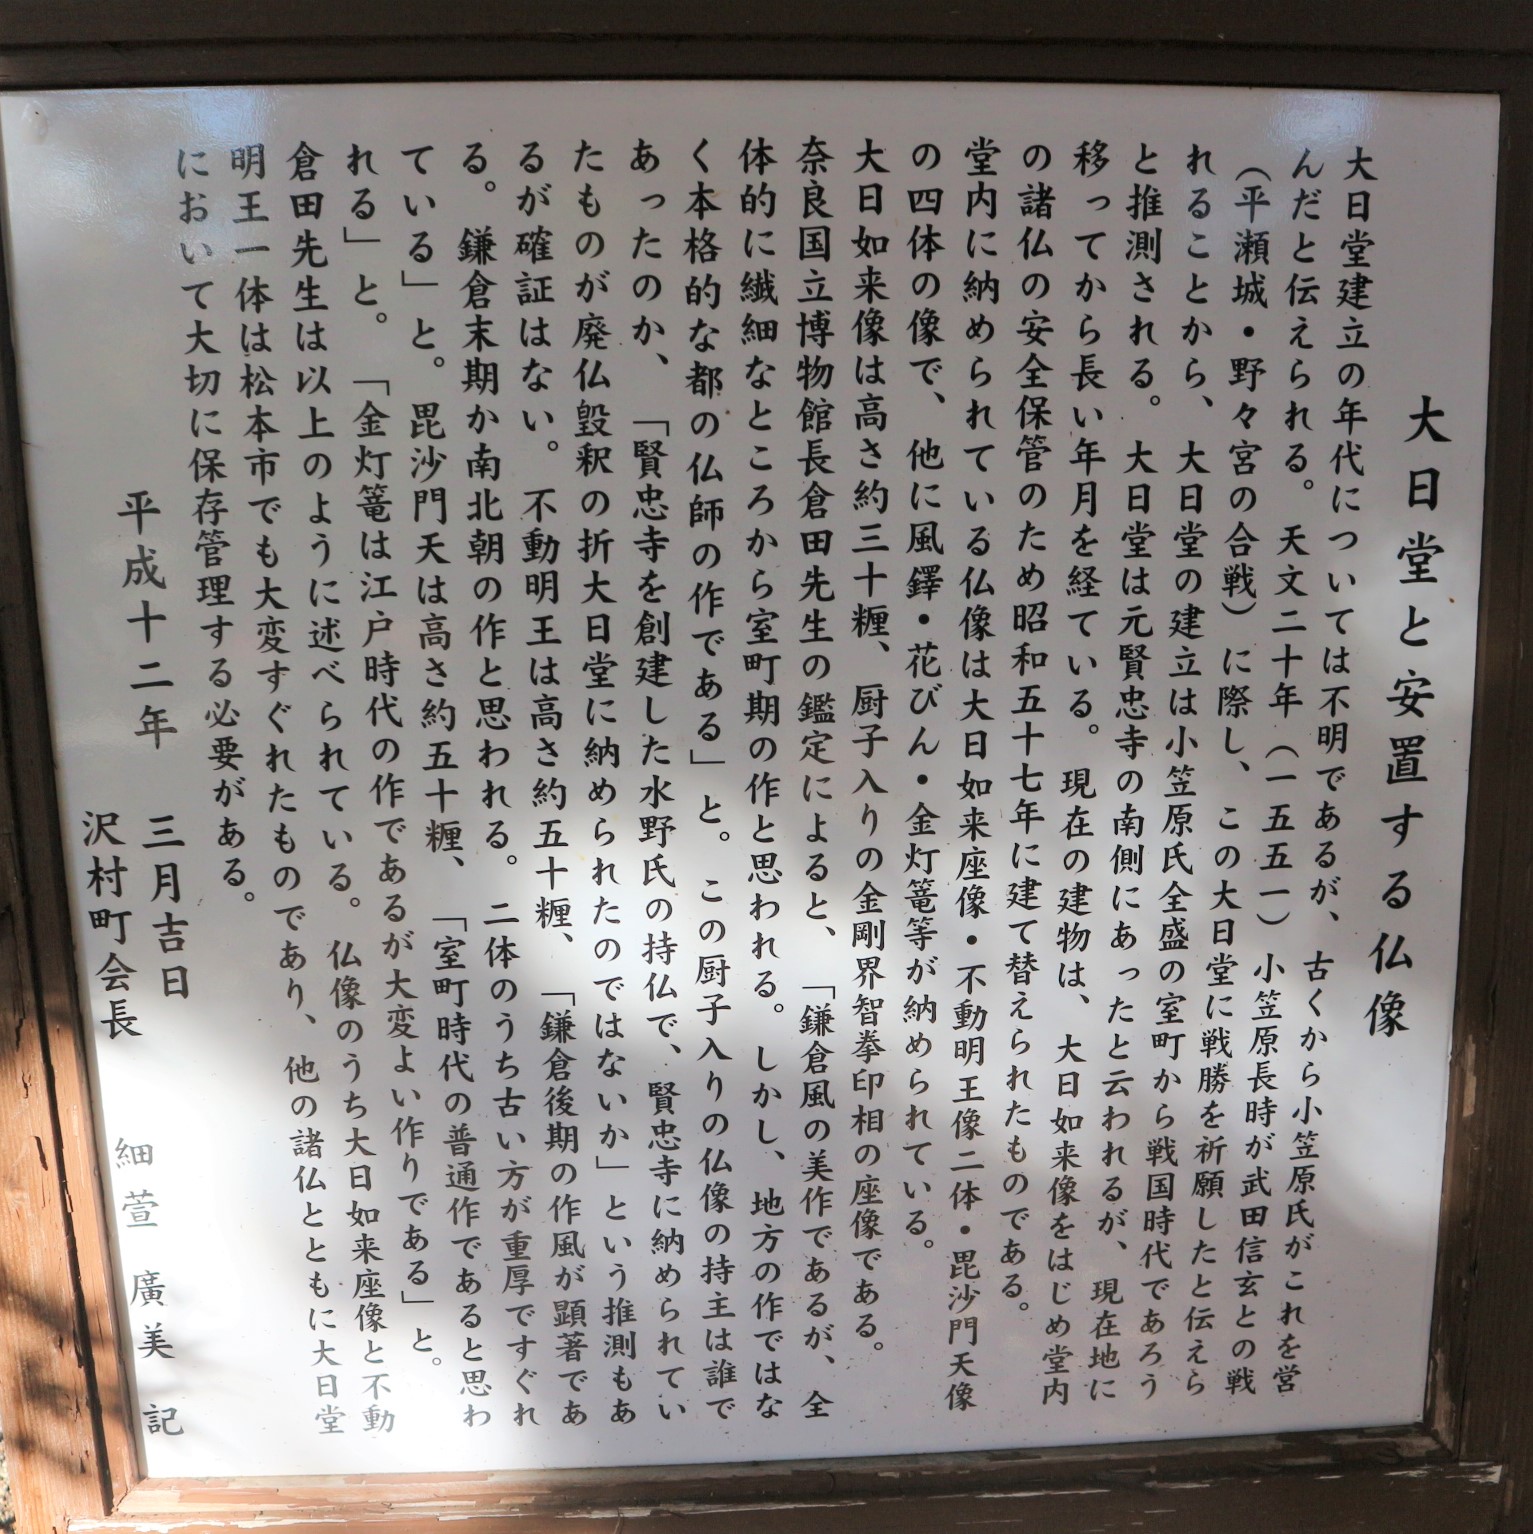 大日堂と安置する仏像
大日堂建立の年代については不明であるが、古くから小笠原氏がこれを営
んだと伝えられる。天文二十年（一五五一）小笠原長時が武田信玄との戦
（平瀬城・野々宮の合戦）に際し、この大日堂に戦勝を祈願したと伝えら
れることから、大日堂の建立は小笠原氏全盛の室町から戦国時代であろう
と推測される。大日堂は元賢忠寺の南側にあったと云われるが、現在地に
移ってから長い年月を経ている。現在の建物は、大日如来像をはじめ堂内
の諸仏の安全保管のため昭和五十七年に建て替えられたものである。
堂内に納められている仏像は大日如来座像・不動明王像二体・毘沙門天像
の四体の像で、他に風鐸・花びん・金灯篭等が納められている。
大日如来像は高さ約三十糎、厨子入りの金剛界智拳印相の座像である。
奈良国立博物館長倉田先生の鑑定によると、「鎌倉風の美作であるが、全
体的に繊細なところから室町期の作と思われる。しかし、地方の作ではな
く本格的な都の仏師の作である」と。この厨子入りの仏像の持主は誰で
あったのか、「賢忠寺を創建した水野氏の持仏で、賢忠寺に納められてい
たものが廃仏毀釈の折大日堂に納められたのではないか」という推測もあ
るが確証はない。不動明王は高さ約五十糎、「鎌倉後期の作風が顕著であ
る。鎌倉末期か南北朝の作と思われる。二体のうち古い方が重厚ですぐれ
ている」と。毘沙門天は高さ約五十糎、「室町時代の普通作であると思わ
れる」と。「金灯篭は江戸時代の作であるが大変よい作りである」と。
倉田先生は以上のように述べられている。仏像のうち大日如来座像と不動
明王一体は松本市でも大変すぐれたものであり、他の諸仏とともに大日堂
において大切に保存管理する必要がある。
平成十二年　三月吉日
沢村町会長　細萱　廣美　記